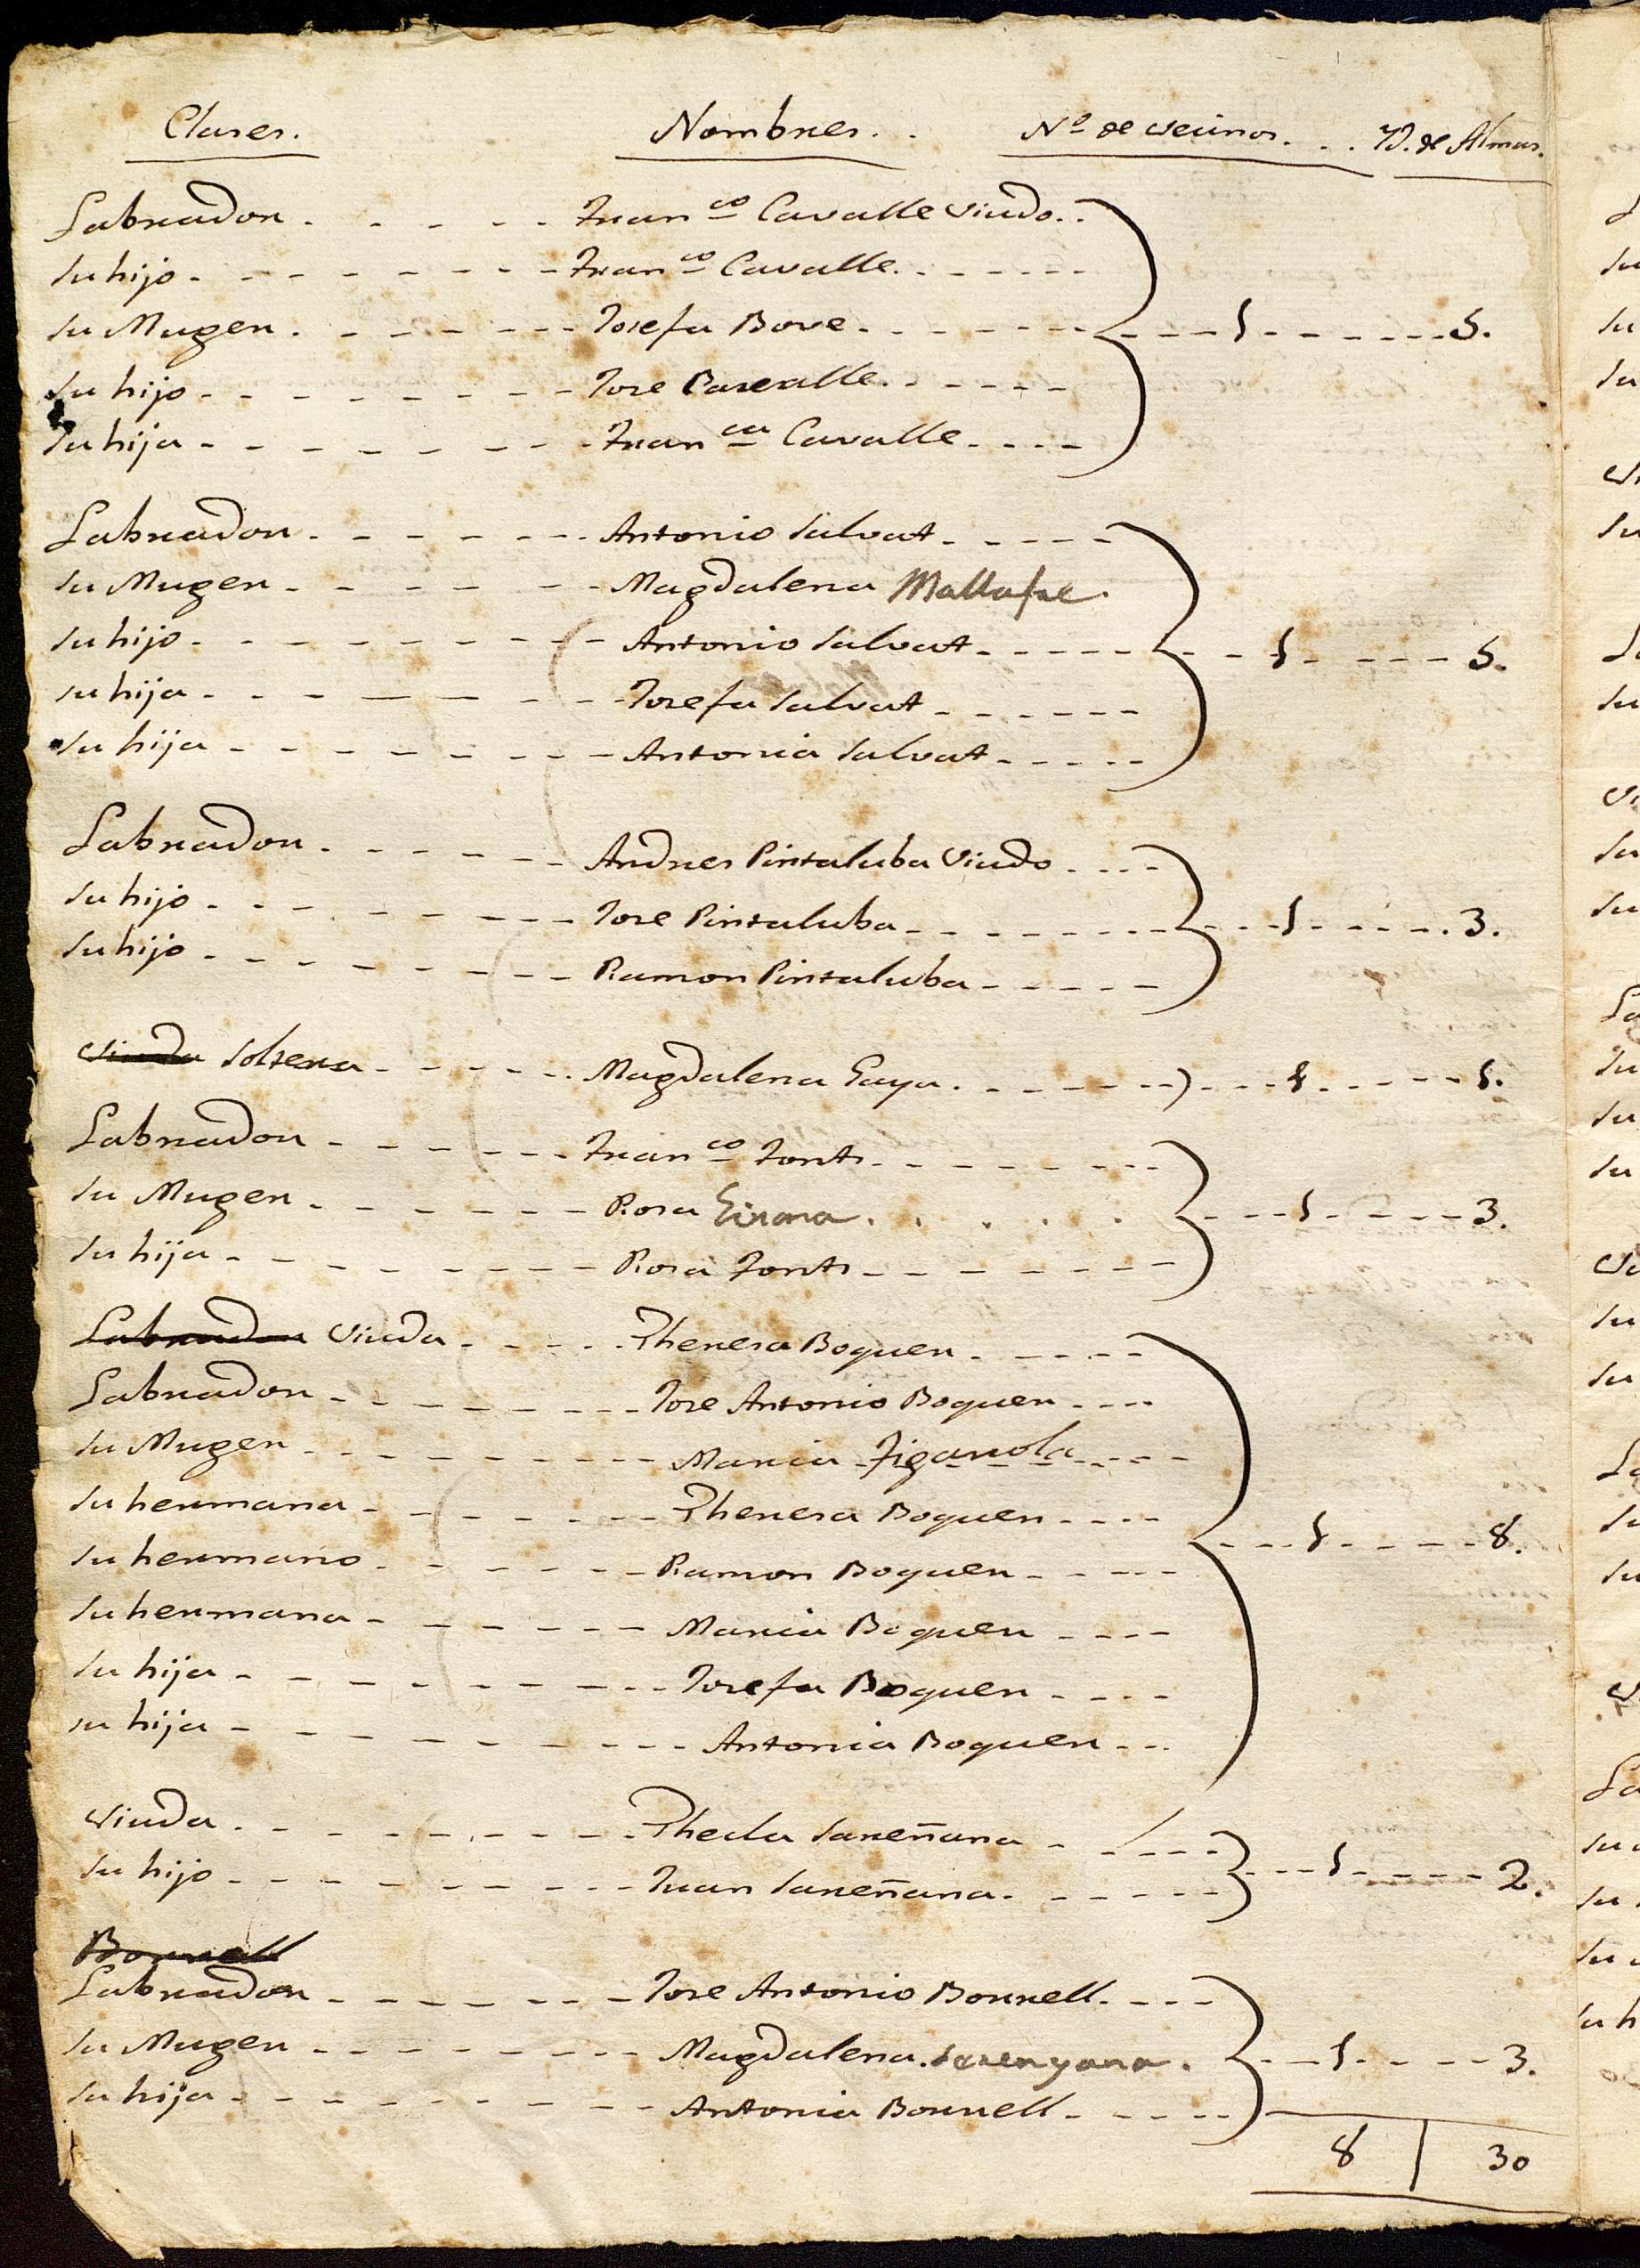 Clases. Nombres. . Nº de vecinos. . . N. de Almas.
Labrador. - - - - Franco Cavalle viudo. .
Su hijo - - - - - - - Franco Cavalle. - - - - -
Su Muger. - - - - - - Josefa Bove. - - - - - - - - - 1 - - - - - 5.
Su hijo - - - - - - - - Jose Cavalle. - - - - -
Su hija - - - - - - - Franca Cavalle - - - -
Labrador - - - - - - Antonio Salvat - - - - -
Su Muger - - - - - - Magdalena Mallafre.
Su hijo - - - - - - - - Antonio Salvat - - - - - - - 1 - - - - 5.
Su hija - - - - - - - Josefa Salvat - - - - - -
Su hija - - - - - - - Antonia Salvat - - - - -
Labrador - - - - - - Andres Pintaluba Viudo - - - -
Su hijo - - - - - - - - Jose Pintaluba - - - - - - - - - - 1 - - - - - 3.
Su hijo - - - - - - - - Ramon Pintaluba - - - - -
Viuda Soltera - - - - - Magdalena Gaya. - - - - - - ) - - - 1 - - - - - 1.
Labrador - - - - - - Franco Fonts - - - - - - - -
Su Muger - - - - - - Rosa Girona. . . . . . - - - 1 - - - - - 3.
Su hija - - - - - - - - Rosa Fonts - - - - - - -
Labrador Viuda - - - - - Theresa Boquer - - - - -
Labrador - - - - - - - - Jose Antonio Boquer - - - -
Su Muger - - - - - - - - Maria Figarola - - - -
Su hermana - - - - - - - Theresa Boquer - - - -
Su hermano - - - - - - - Ramon Boquer - - - - - - - - 1 - - - - - 8.
Su hermana - - - - - - - Maria Boquer - - - -
Su hija - - - - - - - - - Josefa Boquer - - - -
su hija - - - - - - - - - Antonia Boquer - - -
Viuda - - - - - - - - - Thecla Sareñana - - - - -
Su hijo - - - - - - - - - Juan Sareñana - - - - - - - - 1 - - - - - 2.
Borrell
Labrador - - - - - - - Jose Antonio Borrell. - - -
Su Muger - - - - - - - - Magdalena Sarenyana. - - - 1 - - - - 3.
Su hija - - - - - - - - - Antonia Borrell - - - - -
8 | 30